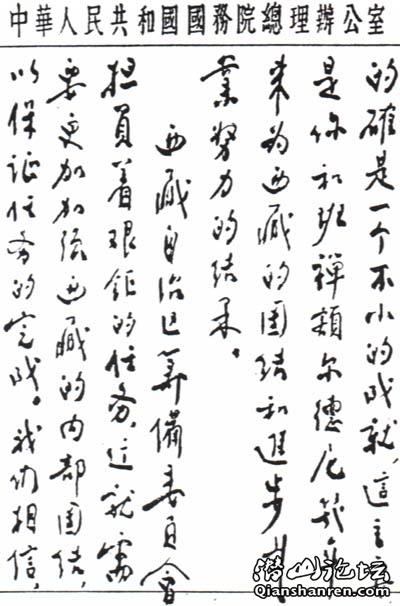 中華人民共和國國務院總理辦公室
的確是一个不小的成就，這主要
是你和班禪額尔德尼几年
来为西藏的团结和進步事
業努力的结果。
西藏自治区筹備委員會
担負着艰鉅的任务，这就需
要更加加强西藏的内部团结，
以保证任务的完成。我们相信，
潜山论坛
Qianshanren.com